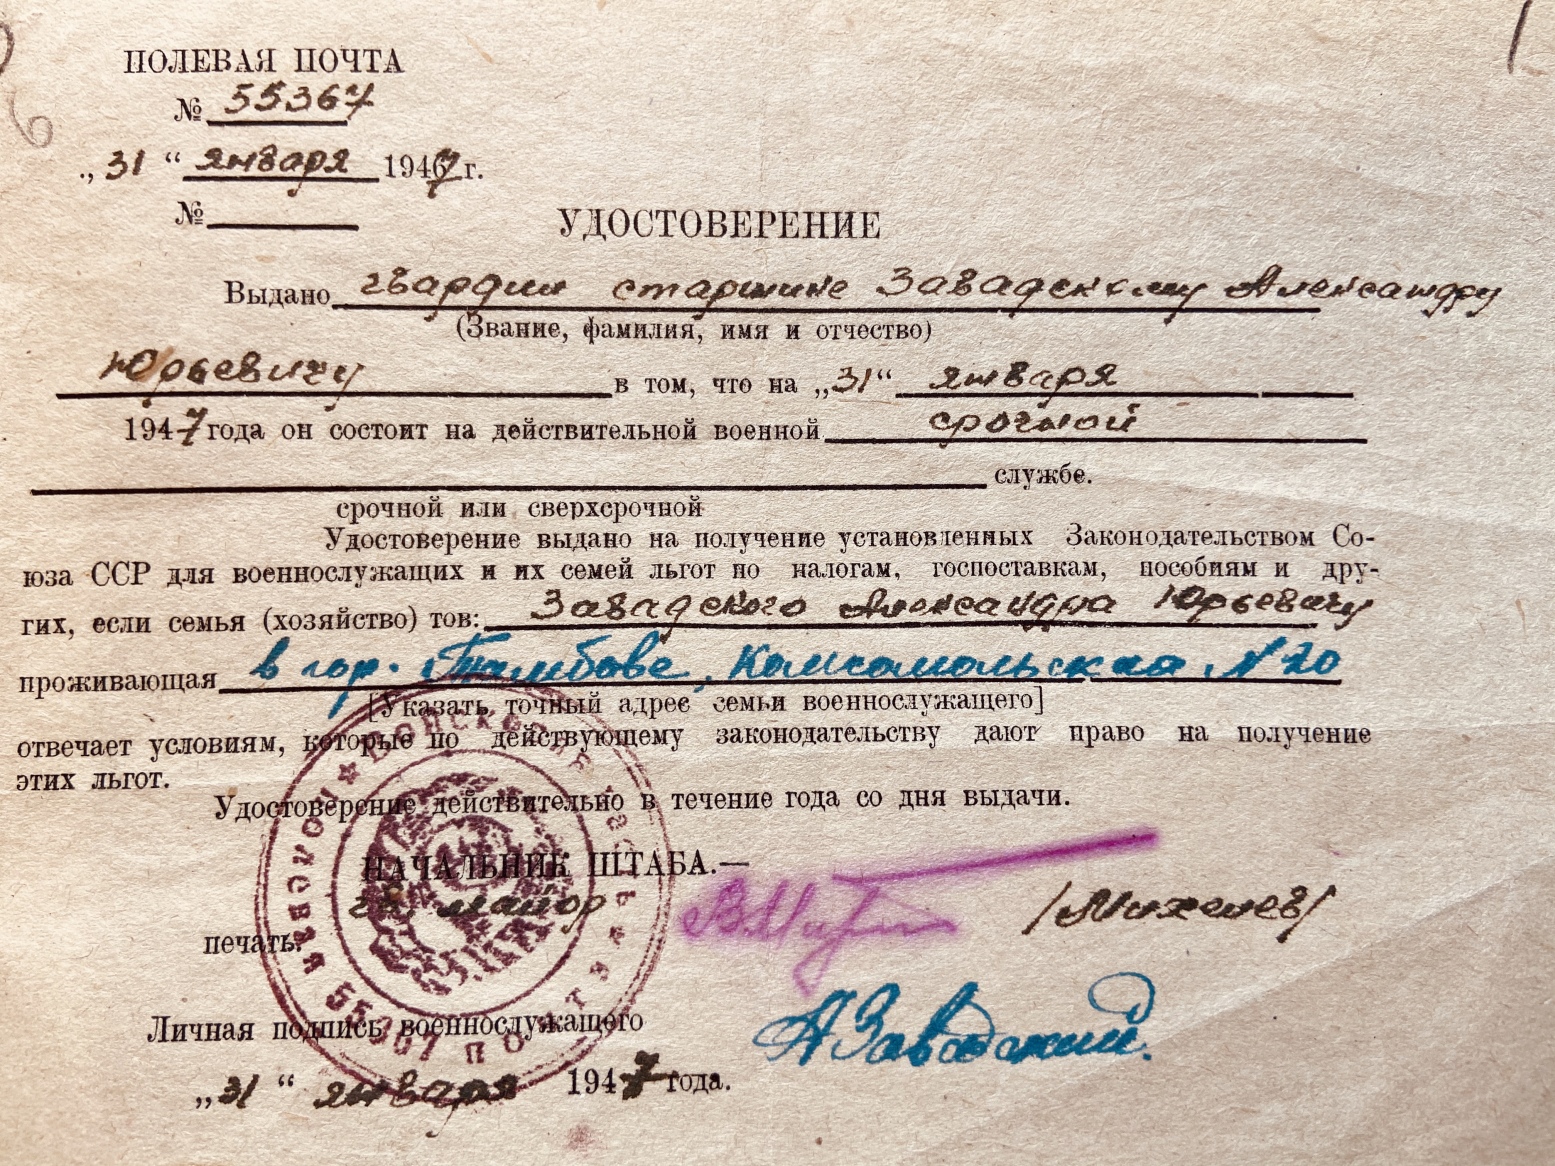 ПОЛЕВАЯ ПОЧТА
№ 55367
„31“ января 1947 г.
№
УДОСТОВЕРЕНИЕ
Выдано гвардии старшине Завадскому Александру
(Звание, фамилия, имя и отчество)
Юрьевичу в том, что на „31“ января
1947 года он состоит на действительной военной срочной
службе.
срочной или сверхсрочной
Удостоверение выдано на получение установленных Законодательством Со-
юза ССР для военнослужащих и их семей льгот по налогам, госпоставкам, пособиям и дру-
гих, если семья (хозяйство) тов: Завадского Александра Юрьевичу
проживающая в гор. Тамбове, Комсомольская № 20
[Указать точный адрес семьи военнослужащего]
отвечает условиям, которые по действующему законодательству дают право на получение
этих льгот.
Удостоверение действительно в течение года со дня выдачи.
НАЧАЛЬНИК ШТАБА.—
гв. майор /Михелев/
печать.
Личная подпись военнослужащего АЗавадский.
„31“ января 1947 года.
ВОЙСКОВАЯ ЧАСТЬ ПОЛЕВОЙ 55367